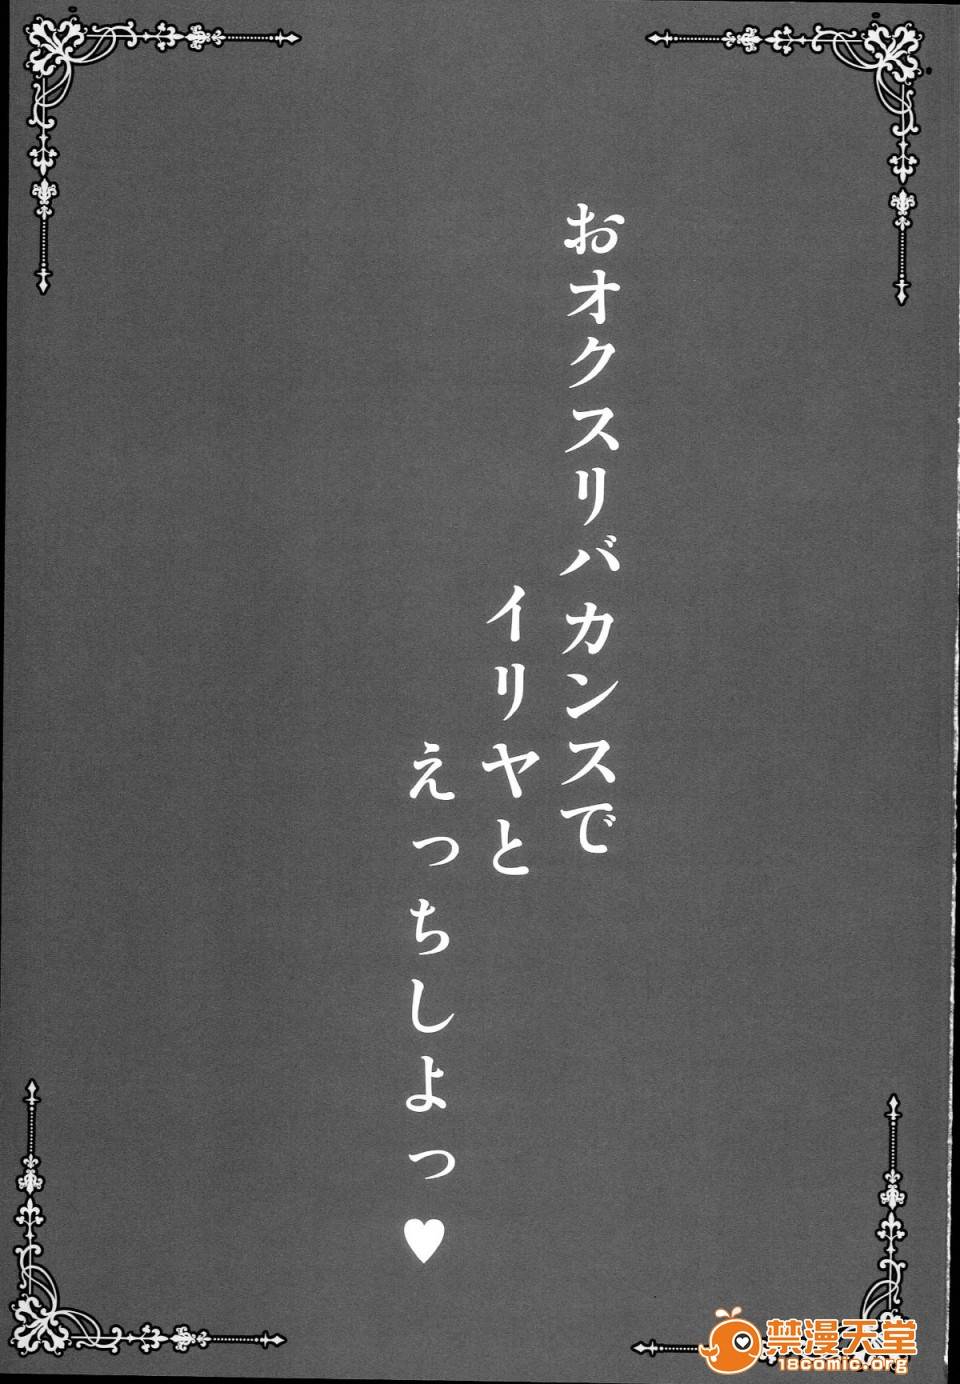 おオクスリバカンスで
イリヤと
えっちしよっ♥
禁漫天堂
18comic.org